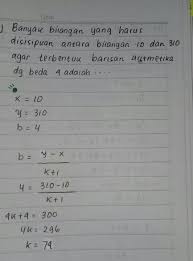 ) Banyak bilangan yang harus
disisipkan antara bilangan 10 dan 310
agar terbentuk barisan aritmetika
dg beda 4 adalah ....
x = 10
y = 310
b = 4
b = y - x
k+1
4 = 310-10
k+1
4k+4 = 300
4k = 296
k = 74